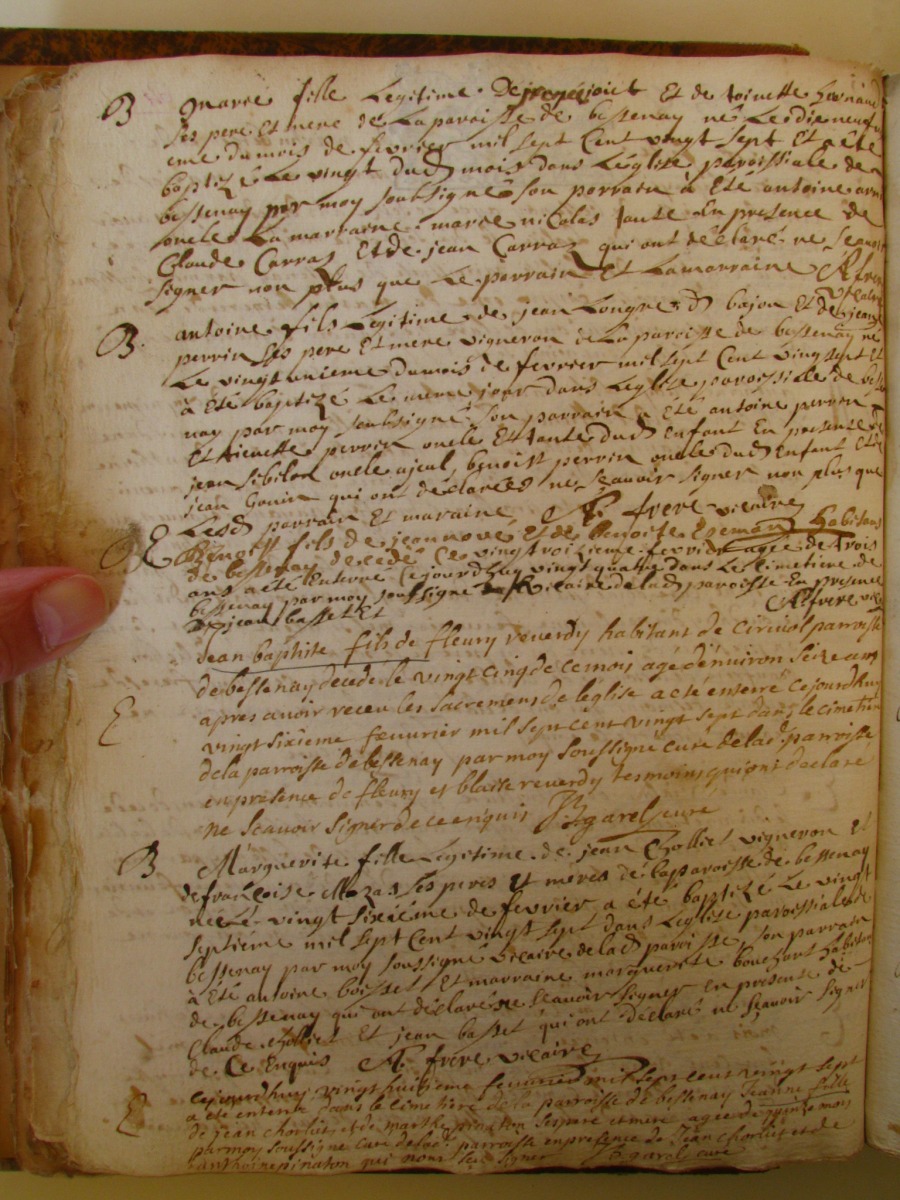 B marie fille Legitime De Et de toinette
ses pere Et mere de La paroisse de bessenay né Le dixneufu
eme dumois de fevrier mil sept Cent vingt sept Et a été
baptizé Le vingt dud mois dans Léglise paroissiale de
bessenay par moy soubsigné son parrain à Eté antoine
oncle La marraine marie nicolas tante En presence de
Claude Carras Et de jean Carras qui ont déclaré ne sçauoir
signer non plus que Le parrain Et La marraine A frere
vicaire
B. antoine fils Legitime de jean Longne d bajon Et de jeanne
perrin ses pere Et mere vigneron de La paroisse de bessenay né
Le vingtunieme dumois de fevrier mil sept Cent vingt sept Et
à Eté baptizé Le meme jour dans Leglise paroissialle de besse
nay par moy soubsigné son parrain a Eté antoine perrin
Et tienette perrin oncle Et tante dud Enfant En presence de
jean sibilon oncle ajeul, benoist perrin oncle dud Enfant Et de
jean Gonin qui ont déclarées ne sçauoir signer non plus que
Lesd parrain Et maraine A frere vicaire
E Benoist fils de jean noué Et de benoite Habitans
de bessenay decedé Le vingt troizieme fevrier agée de trois
ans a été Enterré Cejourdhuy vingt quatre dans Le Cimetiere de
bessenay par moy soussigné vicaire de lad paroisse En presence
de jean basset Et A frere vic
Jean baptiste fils de fleury reuerdy habitant de parroisse
de bessenay decedé le vingt cinq de ce mois agé d'enuiron seize ans
E apres auoir receu les sacremens de leglise a eté enterré cejourdhuy
vingt sixieme feuurier mil sept cent vingt sept dans le cimetiere
de la parroisse de bessenay par moy soussigné curé de lad. parroisse
en presence de fleury et blaise reuerdy tesmoins qui ont declaré
ne scauoir signer de ce enquis garel curé
B Marguerite fille Legitime de jean Cholliet vigneron Et
de françoise Mazas ses peres Et meres de la paroisse de bessenay
née Le vingt sixiéme de fevrier a été baptizé Le vingt
septiéme mil sept Cent vingt sept dans Leglise paroissiale de
bessenay par moy soussigné vicaire de lad paroisse, son parrain
à Eté antoine boisset Et marraine marguerite bouchart habitans
de bessenay qui ont déclaré ne Sçauoir signer En presence de
Claude cholliet Et jean basset qui ont déclaré ne sçauoir signer
de Ce Enquis A. frere vicaire
cejourdhuy vingt huitieme feuurier mil sept cent vingt sept
E a eté enterée dans le cimetiere de la parroisse de bessenay Jeanne fille
de jean chorliet et de marthe pinaton ses pere et mere agée de quinze mois
par moy soussigné curé de lad. parroisse en presence de Jean chorliet et de
anthoine pinaton qui nont sçu signer garel curé